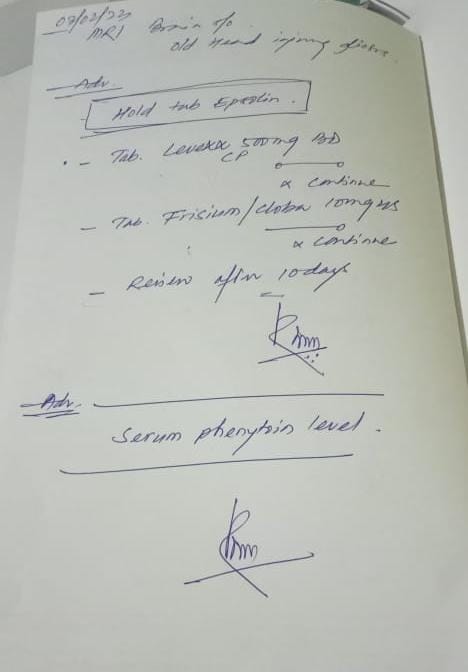 07/02/23
MRI Brain s/o
old Head injury gliosis.
Adv.
Hold tab Epsolin.
- Tab. Levexx 500mg BD
CP
x continue
- Tab. Frisium/Cloba 10mg HS
x continue
- Review after 10 days
Adv.
Serum phenytoin level.